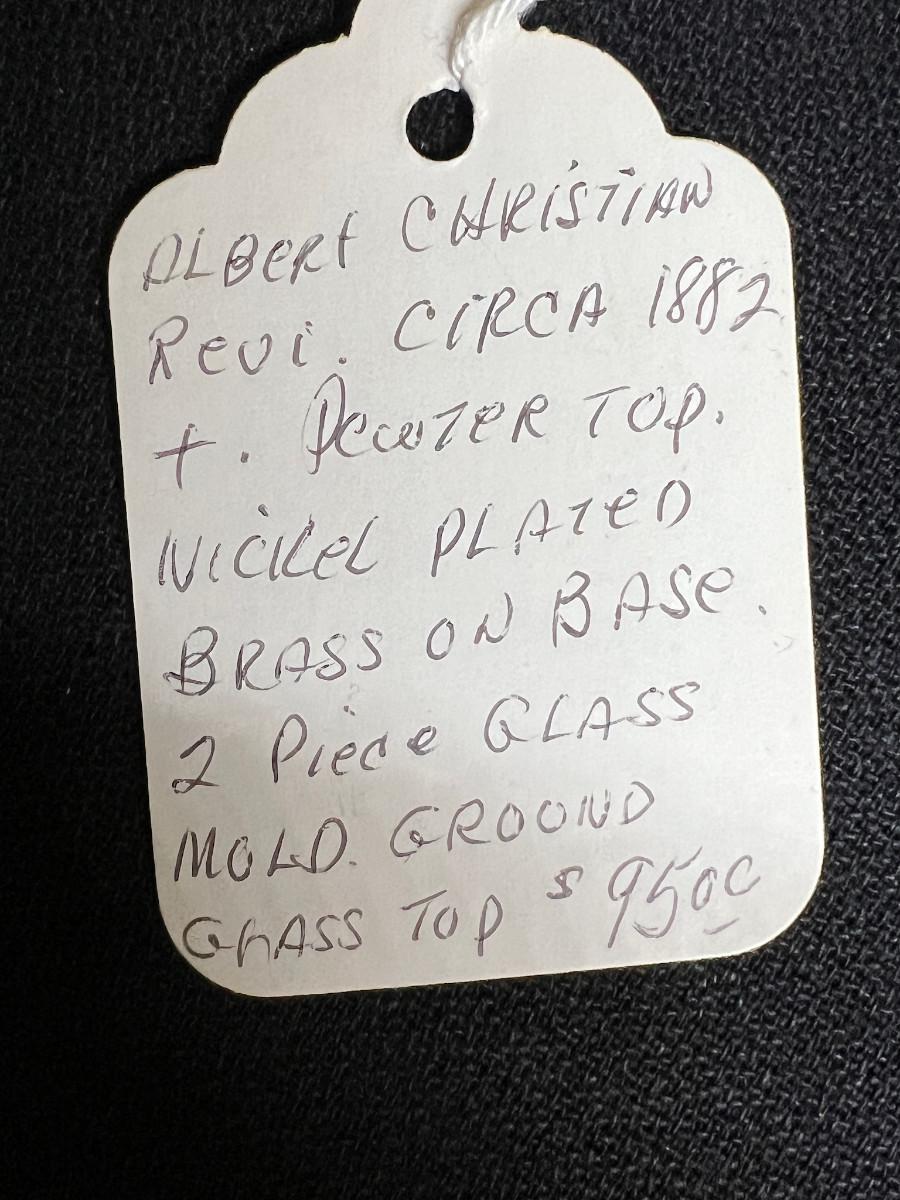 ALBERt CHRiSTiAN
Revi. CiRCA 1882
+. PewTER TOP.
NiCKel PLATED
BRASS ON BASe.
2 Piece GLASS
MOLD. GROUND
GLASS TOP $ 9500